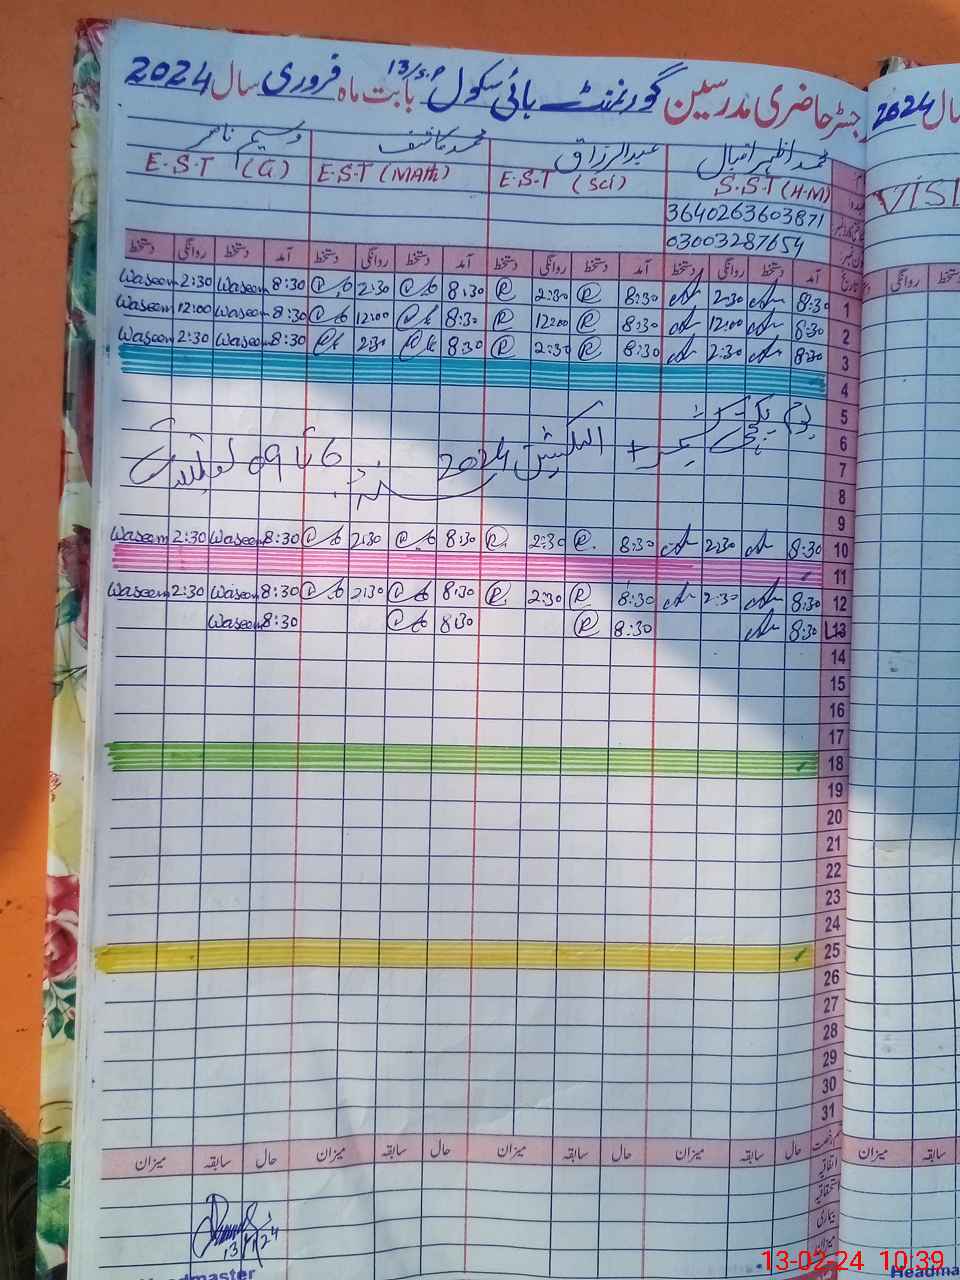 رجسٹر حاضری مدرسین گورنمنٹ ہائی سکول 13/S.P بابت ماہ فروری سال 2024
محمد اظہر اقبال عبدالرزاق محمد کاشف وسیم ناصر
S.S.T (H.M) E.S.T (Sci) E.S.T (Math) E.S.T (G)
3640263603871
03003287654
آمد دستخط روانگی دستخط آمد دستخط روانگی دستخط آمد دستخط روانگی دستخط آمد دستخط روانگی دستخط
1 8:30 2:30 8:30 2:30 8:30 2:30 8:30 Waseem 2:30 Waseem
2 8:30 12:00 8:30 12:00 8:30 12:00 8:30 Waseem 12:00 Waseem
3 8:30 2:30 8:30 2:30 8:30 2:30 8:30 Waseem 2:30 Waseem
4
5
6
الیکشن 2024 + یوم یکجہتی کشمیر
7
6 تا 09
8
9
10 8:30 2:30 8:30 2:30 8:30 2:30 8:30 Waseem 2:30 Waseem
11
12 8:30 2:30 8:30 2:30 8:30 2:30 8:30 Waseem 2:30 Waseem
13 8:30 8:30 8:30 8:30 Waseem
14
15
16
17
18
19
20
21
22
23
24
25
26
27
28
29
30
31
حال سابقہ میزان حال سابقہ میزان حال سابقہ میزان حال سابقہ میزان
اتفاقیہ
استحقاقیہ
بیماری
Headmaster
سال 2024
دستخط روانگی
سابقہ میزان
13-02-24 10:39